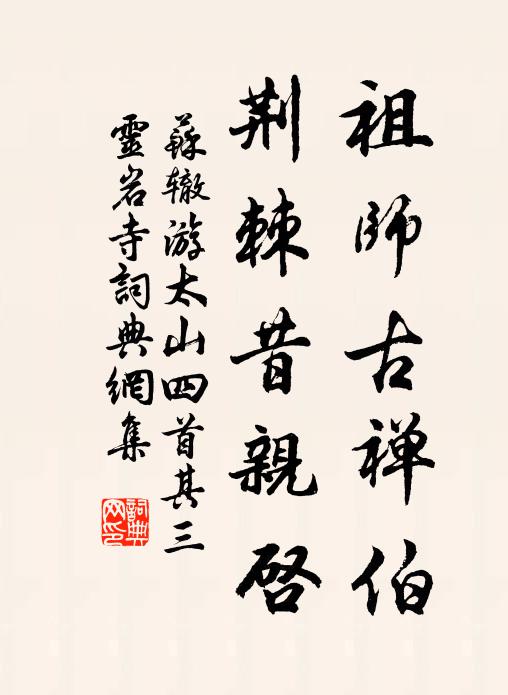 祖師古禅伯
荆棘昔親啓
蘇辙游太山四首其三
靈岩寺詞典網集
詞典网印